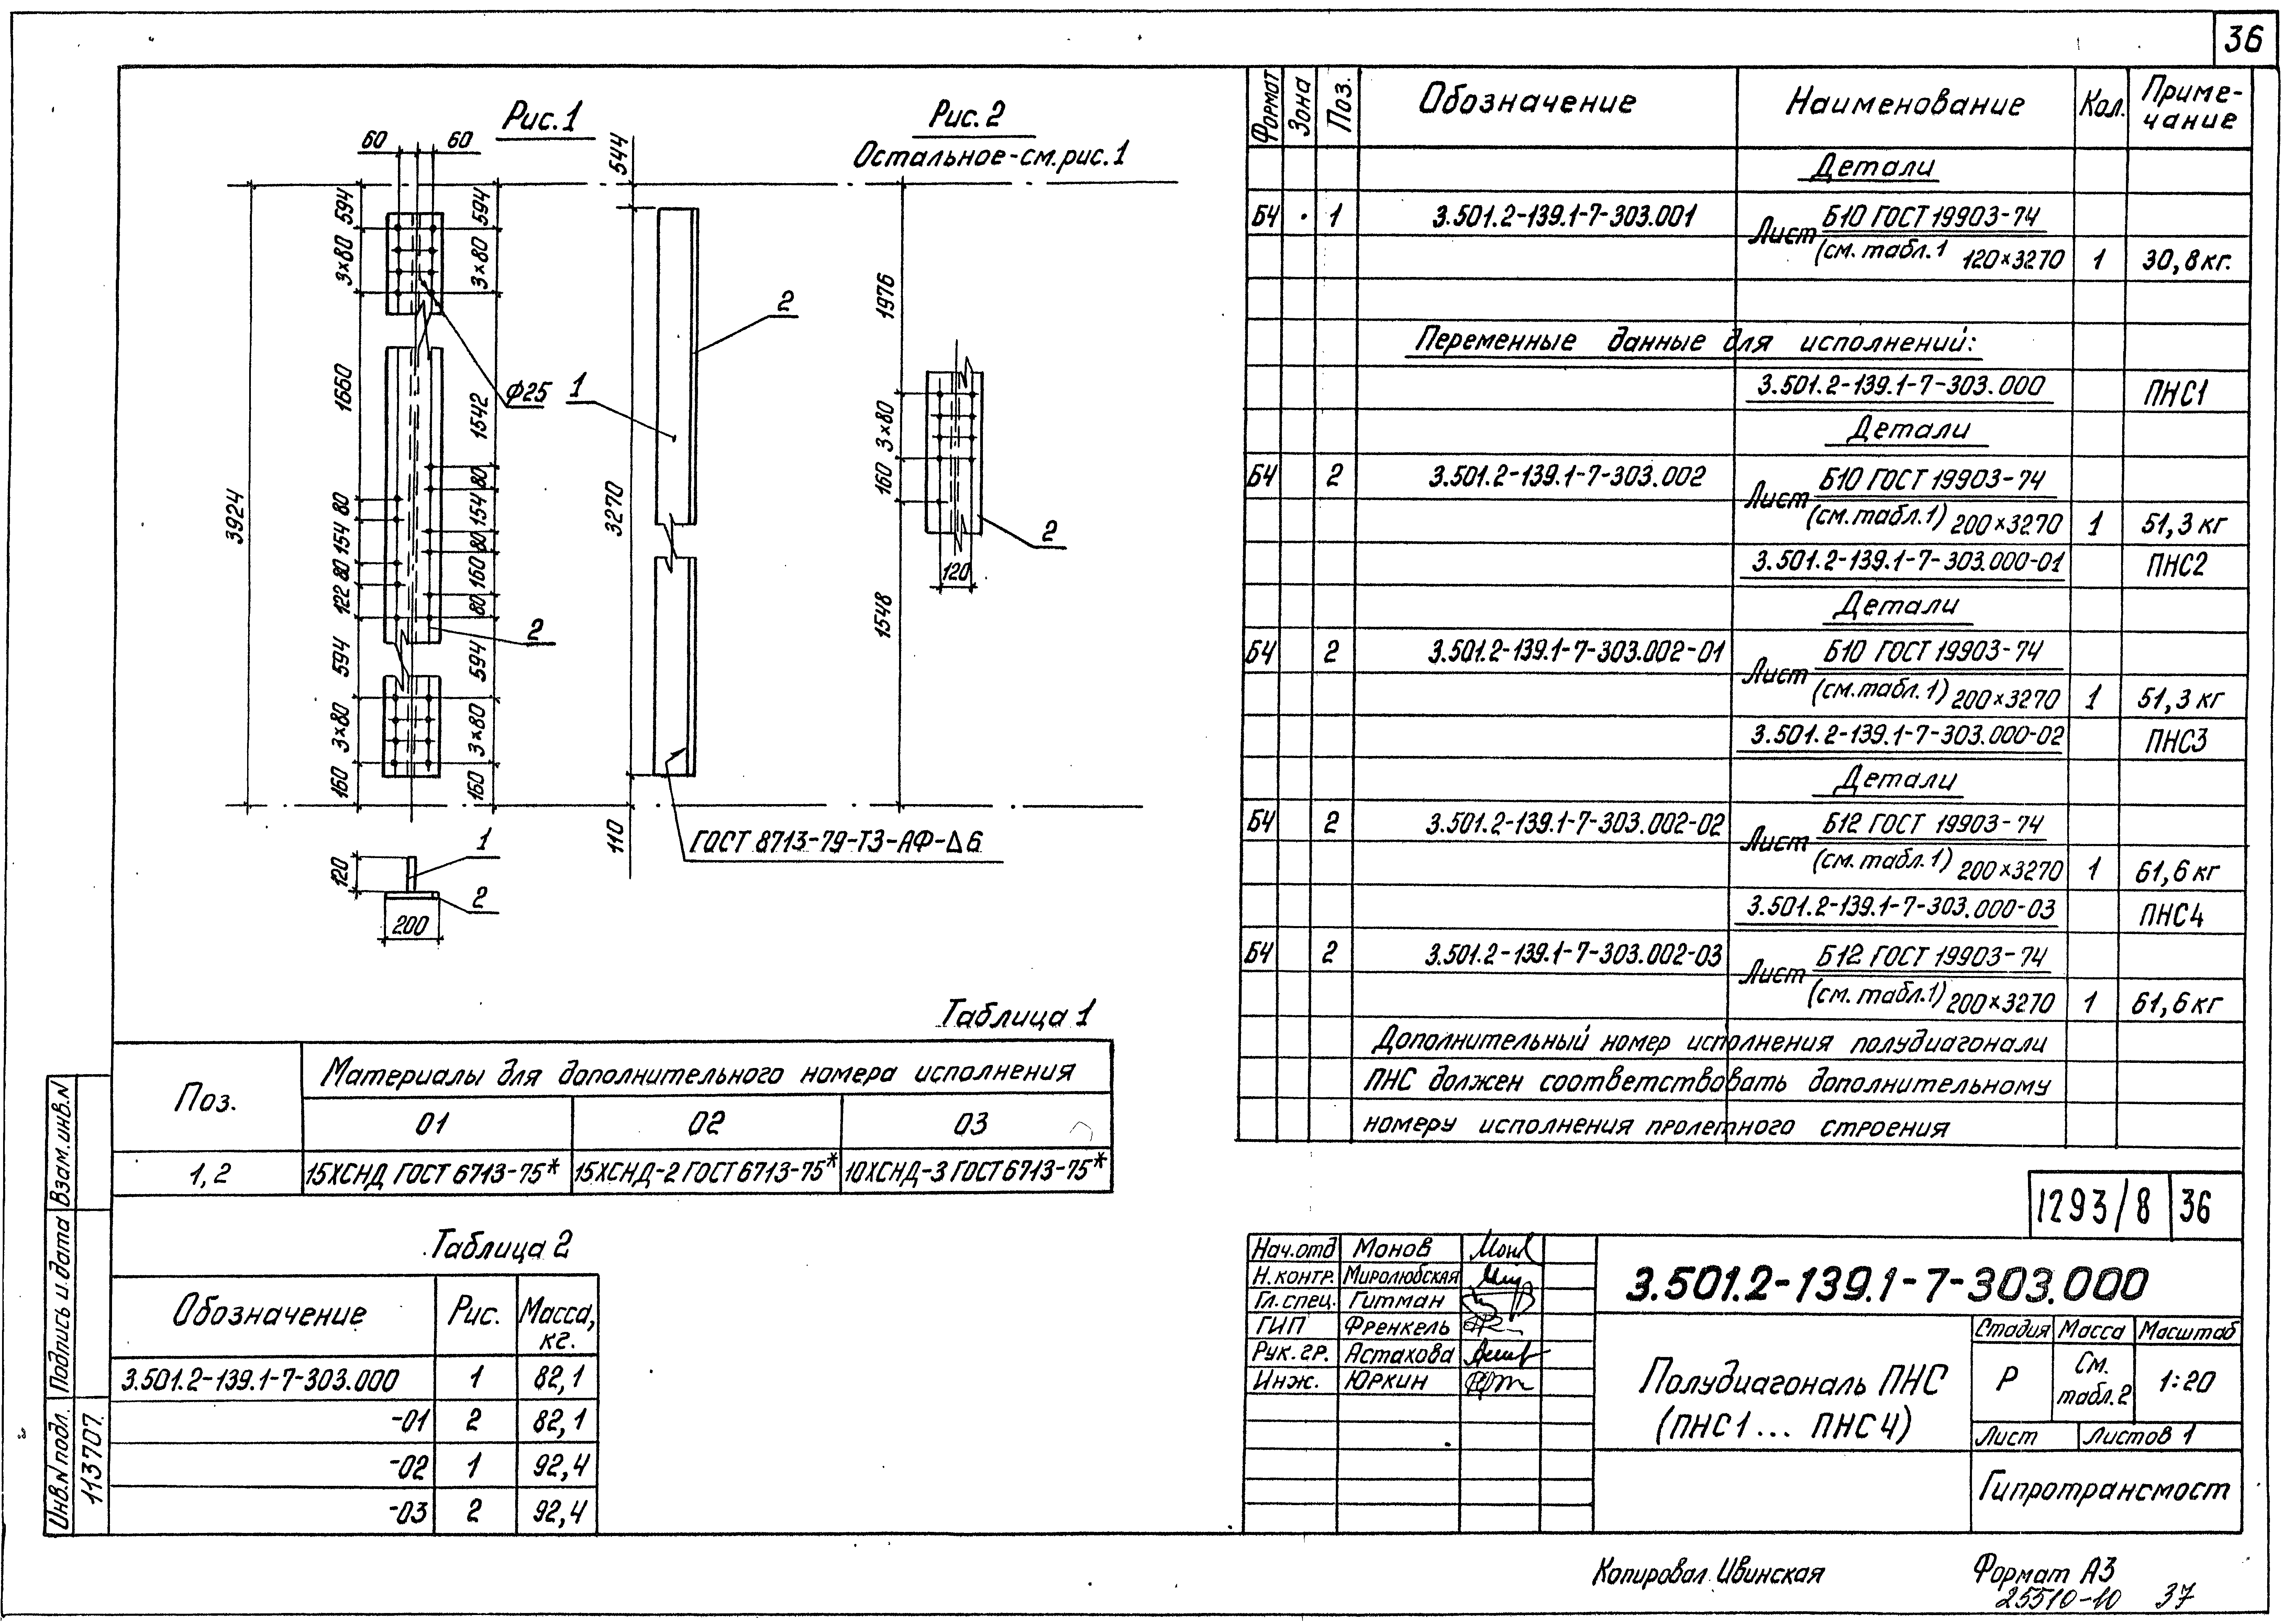 36
Рис.1
60
60
594
3×80
1660
80
154
80
122
594
3×80
160
3924
594
3×80
1542
80
154
80
160
80
594
3×80
160
φ25
2
544
3270
110
1
2
ГОСТ 8713-79-Т3-АФ-Δ6
120
200
1
2
Рис.2
Остальное-см.рис.1
1976
3×80
160
1548
120
2
Таблица 1
Поз.
Материалы для дополнительного номера исполнения
01 02 03
1,2 15ХСНД ГОСТ 6713-75* 15ХСНД-2 ГОСТ 6713-75* 10ХСНД-3 ГОСТ 6713-75*
Таблица 2
Обозначение Рис. Масса, кг.
3.501.2-139.1-7-303.000 1 82,1
-01 2 82,1
-02 1 92,4
-03 2 92,4
Формат Зона Поз. Обозначение Наименование Кол. Приме-
чание
Детали
Б4 1 3.501.2-139.1-7-303.001 Лист Б10 ГОСТ 19903-74
(см. табл.1 120×3270 1 30,8кг.
Переменные данные для исполнений:
3.501.2-139.1-7-303.000 ПНС1
Детали
Б4 2 3.501.2-139.1-7-303.002 Лист Б10 ГОСТ 19903-74
(см.табл.1) 200×3270 1 51,3 кг
3.501.2-139.1-7-303.000-01 ПНС2
Детали
Б4 2 3.501.2-139.1-7-303.002-01 Лист Б10 ГОСТ 19903-74
(см.табл.1) 200×3270 1 51,3 кг
3.501.2-139.1-7-303.000-02 ПНС3
Детали
Б4 2 3.501.2-139.1-7-303.002-02 Лист Б12 ГОСТ 19903-74
(см.табл.1) 200×3270 1 61,6 кг
3.501.2-139.1-7-303.000-03 ПНС4
Б4 2 3.501.2-139.1-7-303.002-03 Лист Б12 ГОСТ 19903-74
(см.табл.1) 200×3270 1 61,6 кг
Дополнительный номер исполнения полудиагонали
ПНС должен соответствовать дополнительному
номеру исполнения пролетного строения
1293/8 36
Нач.отд Монов
Н.контр. Миролюбская
Гл.спец. Гитман
ГИП Френкель
Рук.гр. Астахова
Инж. Юркин
3.501.2-139.1-7-303.000
Полудиагональ ПНС
(ПНС1... ПНС4)
Стадия Масса Масштаб
Р См. табл.2 1:20
Лист Листов 1
Гипротрансмост
Инв.N подл. Подпись и дата Взам.инв.N
113707.
Копировал Ивинская
Формат А3
25510-10 37